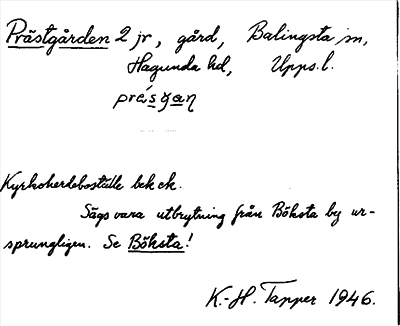 Prästgården 2 jr, gård, Balingsta sn,
Hagunda hd, Upps. l.
Kyrkoherdeboställe bek ek.
Sägs vara utbrytning från Böksta by ur-
sprungligen. Se Böksta!
K.-H. Tapper 1946.